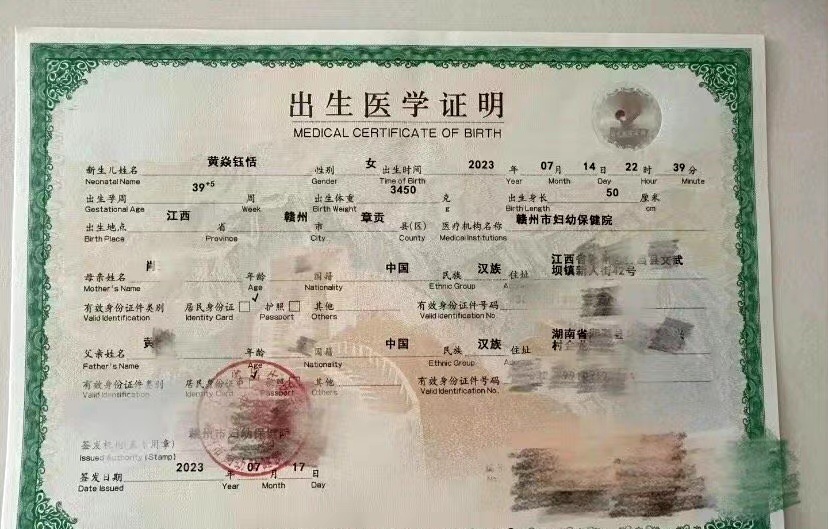 出生医学证明
MEDICAL CERTIFICATE OF BIRTH
新生儿姓名 黄焱钰恬 性别 女 出生时间 2023 年 07 月 14 日 22 时 39 分
Neonatal Name Gender Time of Birth Year Month Day Hour Minute
出生孕周 39+5 周 出生体重 3450 克 出生身长 50 厘米
Gestational Age Week Birth Weight g Birth Length cm
出生地点 江西 省 赣州 市 章贡 县(区) 医疗机构名称 赣州市妇幼保健院
Birth Place Province City County Medical Institutions
母亲姓名 肖 年龄 国籍 中国 民族 汉族 住址 江西省 县文武坝镇新人街42号
Mother's Name Age Nationality Ethnic Group Address
有效身份证件类别 居民身份证 ✓ 护照 其他 有效身份证件号码
Valid Identification Identity Card Passport Others Valid Identification No.
父亲姓名 黄 年龄 国籍 中国 民族 汉族 住址 湖南省 村
Father's Name Age Nationality Ethnic Group Address
有效身份证件类别 居民身份证 护照 其他 有效身份证件号码
Valid Identification Identity Card Passport Others Valid Identification No.
签发机构 用章) 赣州市妇幼保健院
Issued Authority (Stamp)
签发日期 2023 年 07 月 17 日
Date Issued Year Month Day